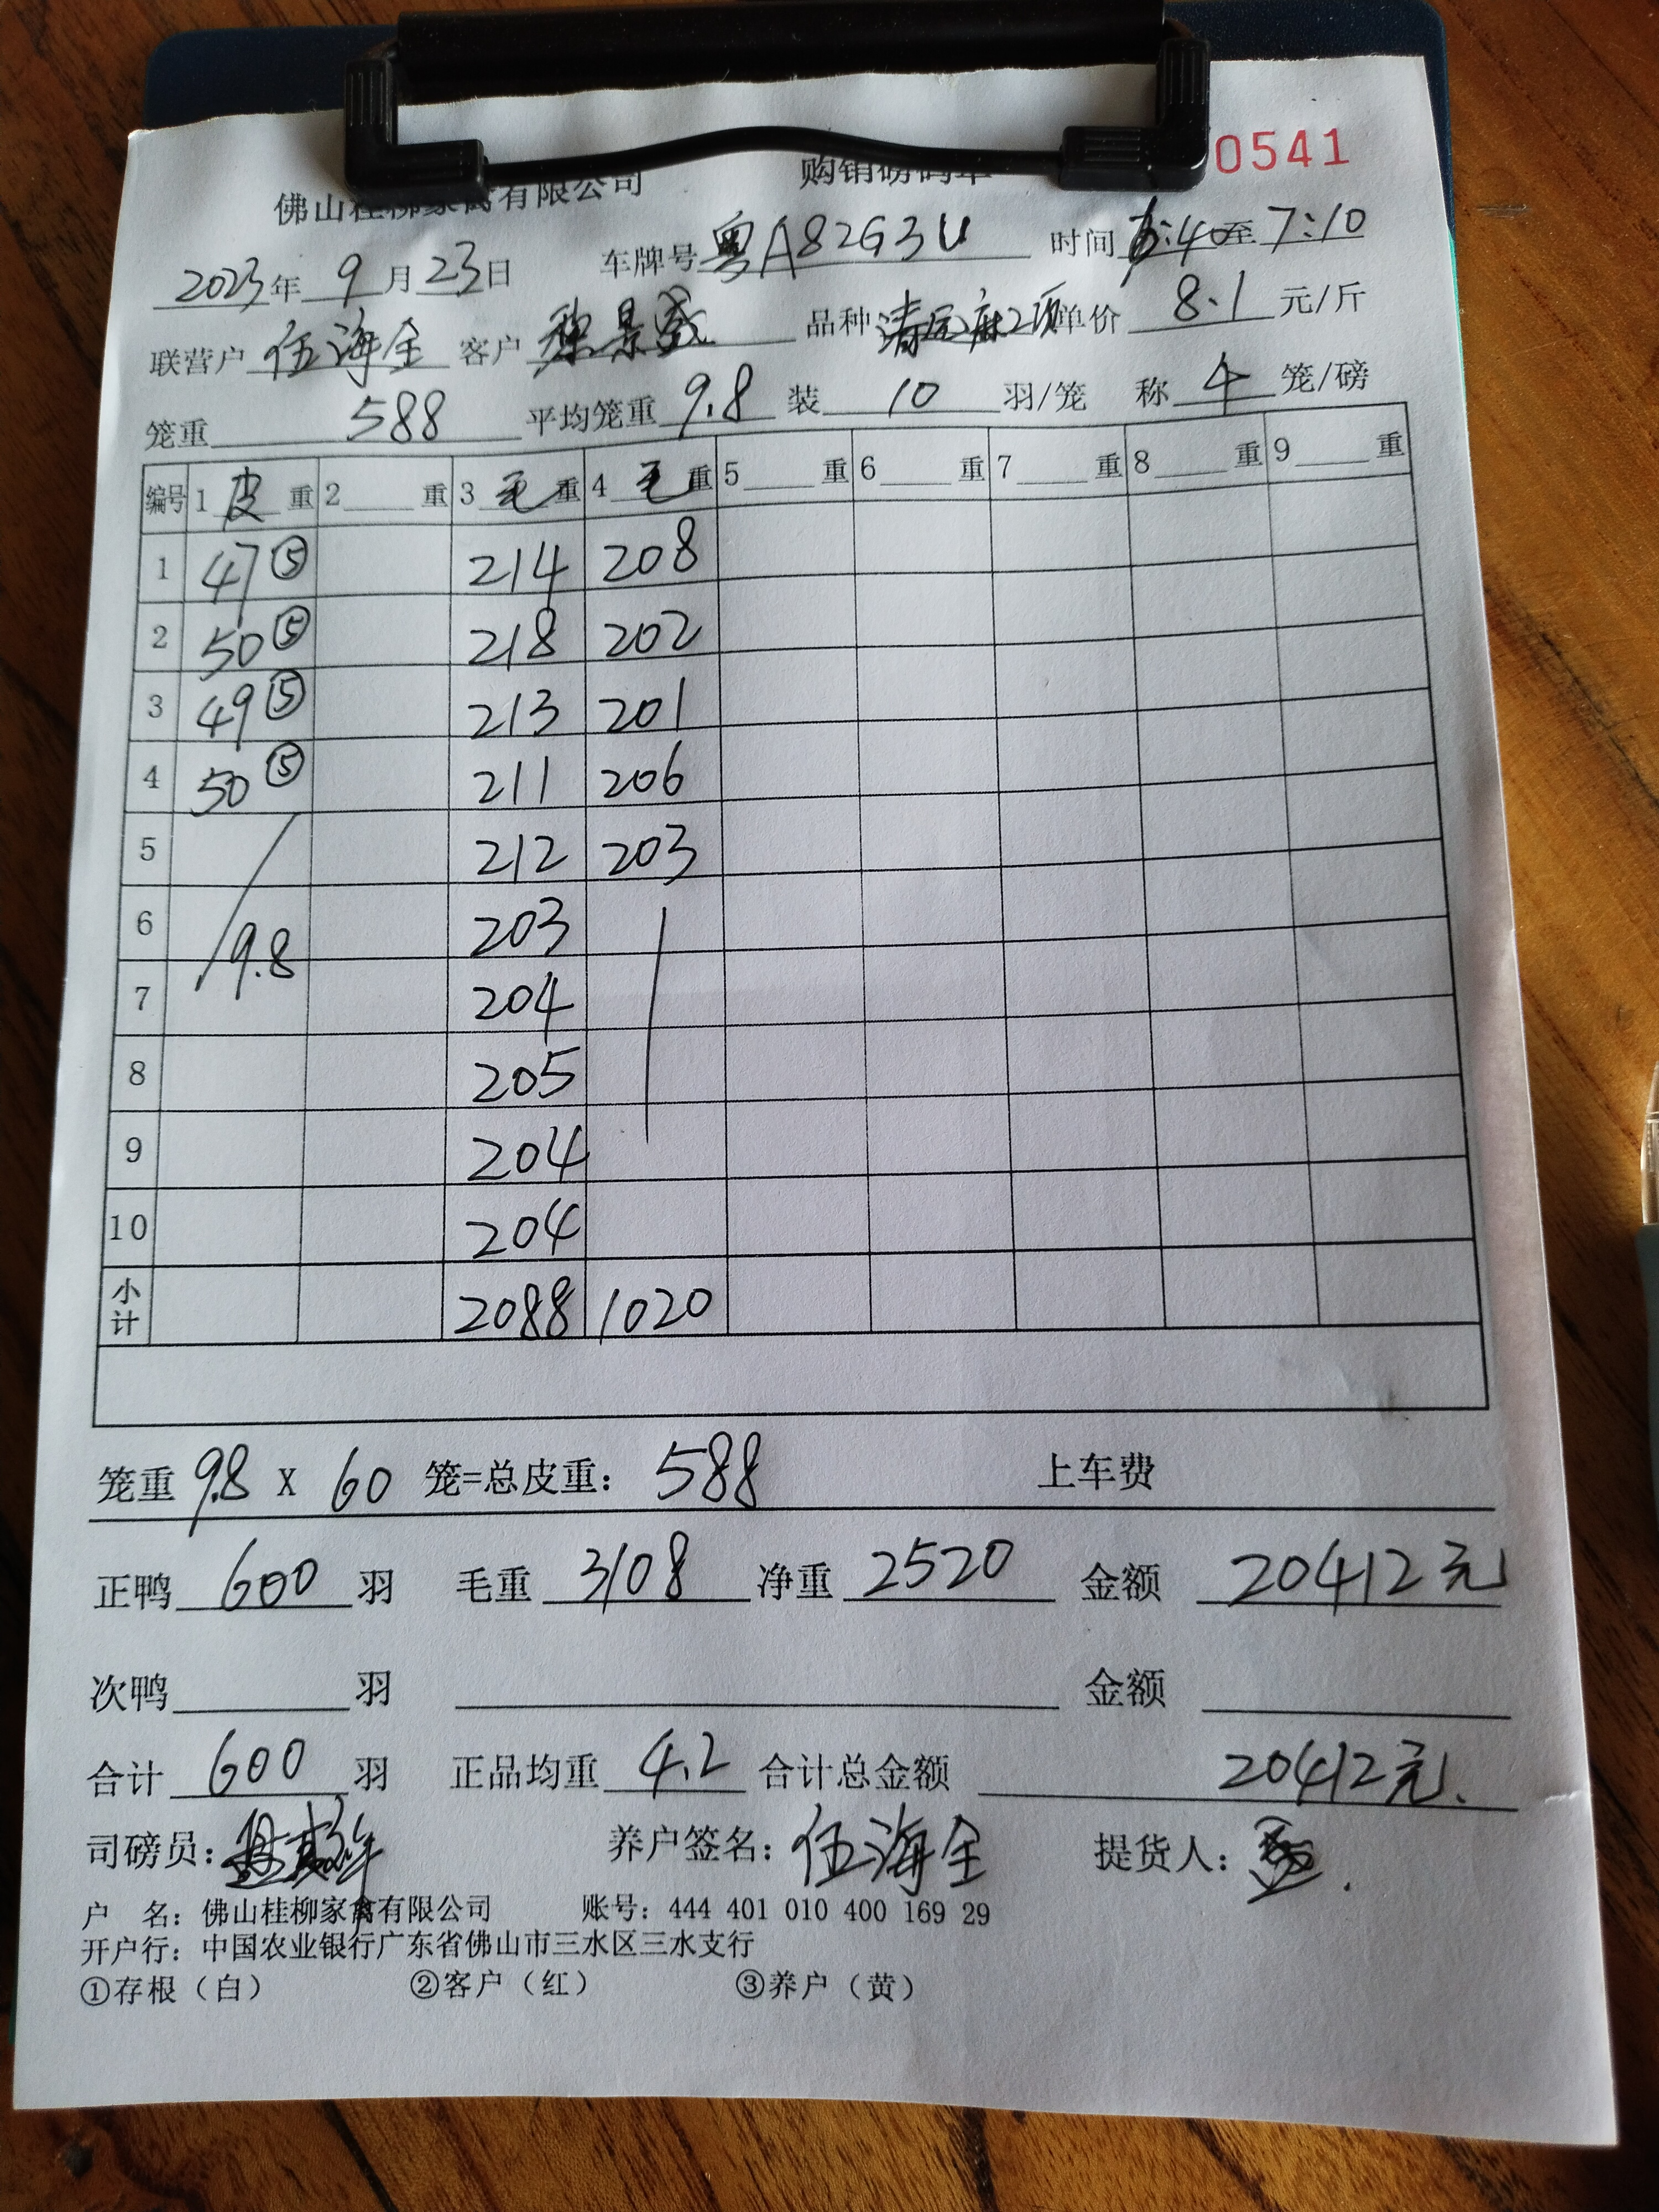 佛山桂柳家禽有限公司 购销磅码单 0541
2023年 9月23日 车牌号 粤A82G3U 时间 6:40至 7:10
联营户 伍海全 客户 景威 品种 清远麻2项 单价 8.1 元/斤
笼重 588 平均笼重 9.8 装 10 羽/笼 称 4 笼/磅
编号 1 皮 重 2 重 3 毛 重 4 毛 重 5 重 6 重 7 重 8 重 9 重
1 47⑤ 214 208
2 50⑤ 218 202
3 49⑤ 213 201
4 50⑤ 211 206
5 212 203
6 9.8 203
7 204
8 205
9 204
10 204
小计 2088 1020
笼重 9.8 X 60 笼=总皮重: 588 上车费
正鸭 600 羽 毛重 3108 净重 2520 金额 20412元
次鸭 羽 金额
合计 600 羽 正品均重 4.2 合计总金额 20412元.
司磅员: 养户签名: 伍海全 提货人:
户 名: 佛山桂柳家禽有限公司 账号: 444 401 010 400 169 29
开户行: 中国农业银行广东省佛山市三水区三水支行
①存根（白） ②客户（红） ③养户（黄）